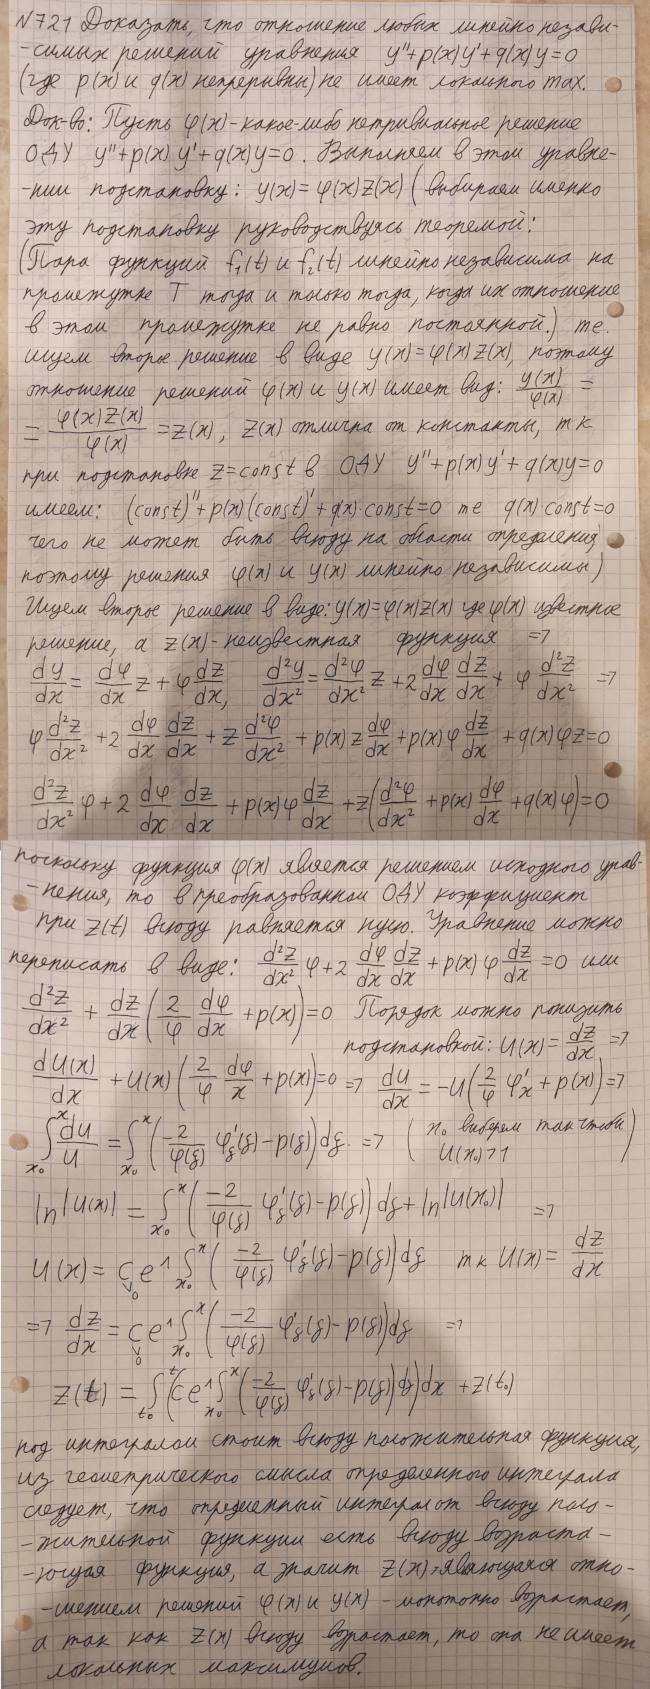 N721 Доказать, что отношение любых линейно незави-
-симых решений уравнения y''+p(x)y'+q(x)y=0
(где p(x) и q(x) непрерывны) не имеет локального max.
Док-во: Пусть φ(x)-какое-либо нетривиальное решение
ОДУ y''+p(x)y'+q(x)y=0. Выполняем в этом уравне-
-нии подстановку: y(x)=φ(x)z(x) (выбираем именно
эту подстановку руководствуясь теоремой:
(Пара функций f₁(t) и f₂(t) линейно независима на
промежутке T тогда и только тогда, когда их отношение
в этом промежутке не равно постоянной.) те.
ищем второе решение в виде y(x)=φ(x)z(x), поэтому
отношение решений φ(x) и y(x) имеет вид: y(x)/φ(x) =
= φ(x)z(x)/φ(x) = z(x), z(x) отлична от константы, тк
при подстановке z=const в ОДУ y''+p(x)y'+q(x)y=0
имеем: (const)''+p(x)(const)'+q(x)·const=0 те q(x)·const=0
чего не может быть всюду на области определения,
поэтому решения φ(x) и y(x) линейно независимы)
Ищем второе решение в виде: y(x)=φ(x)z(x) где φ(x) известное
решение, а z(x)-неизвестная функция =>
dy/dx = dφ/dx z + φ dz/dx, d²y/dx² = d²φ/dx² z + 2 dφ/dx dz/dx + φ d²z/dx² =>
φ d²z/dx² + 2 dφ/dx dz/dx + z d²φ/dx² + p(x)z dφ/dx + p(x)φ dz/dx + q(x)φz=0
d²z/dx² φ + 2 dφ/dx dz/dx + p(x)φ dz/dx + z(d²φ/dx² + p(x) dφ/dx + q(x)φ)=0
поскольку функция φ(x) является решением исходного урав-
-нения, то в преобразованном ОДУ коэффициент
при z(t) всюду равняется нулю. Уравнение можно
переписать в виде: d²z/dx² φ + 2 dφ/dx dz/dx + p(x)φ dz/dx = 0 или
d²z/dx² + dz/dx (2/φ dφ/dx + p(x))=0 Порядок можно понизить
подстановкой: U(x) = dz/dx =>
dU(x)/dx + U(x) (2/φ dφ/x + p(x))=0 => du/dx = -U(2/φ φ'ₓ + p(x)) =>
∫ₓ₀ˣ du/u = ∫ₓ₀ˣ (-2/φ(ξ) φ'ξ(ξ)-p(ξ))dξ. => (x₀ выберем так чтобы U(x₀)>1)
ln|U(x)| = ∫ₓ₀ˣ (-2/φ(ξ) φ'ξ(ξ)-p(ξ))dξ + ln|U(x₀)| =>
U(x) = C e^∫ₓ₀ˣ (-2/φ(ξ) φ'ξ(ξ)-p(ξ))dξ тк U(x) = dz/dx
V
0
=> dz/dx = C e^∫ₓ₀ˣ (-2/φ(ξ) φ'ξ(ξ)-p(ξ))dξ =>
V
0
z(t) = ∫ₜ₀ᵗ (C e^∫ₓ₀ˣ (-2/φ(ξ) φ'ξ(ξ)-p(ξ))dξ)dx + z(t₀)
под интегралом стоит всюду положительная функция,
из геометрического смысла определенного интеграла
следует, что определенный интеграл от всюду поло-
-жительной функции есть всюду возраста-
-ющая функция, а значит z(x), являющаяся отно-
-шением решений φ(x) и y(x) - монотонно возрастает,
а так как z(x) всюду возрастает, то она не имеет
локальных максимумов.